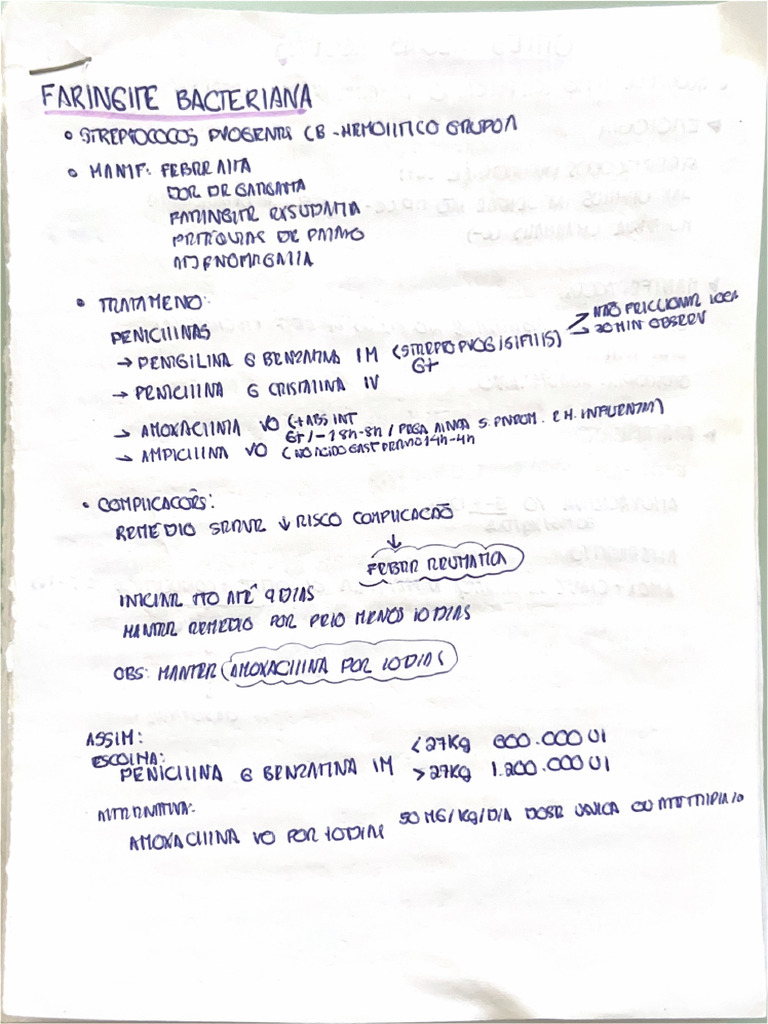 FARINGITE BACTERIANA
• STREPTOCOCOS PYOGENES (B-HEMOLITICO GRUPO A
• MANIF: FEBRE ALTA
DOR DE GARGANTA
FARINGITE EXSUDATIA
PETEQUIAS DE PALATO
ADENOMEGALIA
• TRATAMENO:
PENICILINAS
→ PENICILINA G BENZATINA IM (STREPTO PYOG | SIFILIS) NÃO FRICCIONAR LOCA
G+ 30 MIN OBSERV
→ PENICILINA G CRISTALINA IV
→ AMOXACILINA VO (+ ABS INT
G+/- 18h-8h / PEGA AINDA S. PNEUM. E H. INFLUENZA)
→ AMPICILINA VO (NO ACIDO GAST 14h-4h
• COMPLICACOËS:
REMEDIO SERVE ↓ RISCO COMPLICACAÕ
↓
FEBRE REUMATICA
INICIAR TTO ATÉ 9 DIAS
MANTER REMEDIO POR PELO MENOS 10 DIAS
OBS: MANTER AMOXACILINA POR 10 DIAS
ASSIM:
ESCOLHA:
PENICILINA G BENZATINA IM < 27Kg 600.000 UI
> 27Kg 1.200.000 UI
ALTERNATIVA:
AMOXACILINA VO POR 10 DIAS 50 MG/KG/DIA DOSE UNICA OU